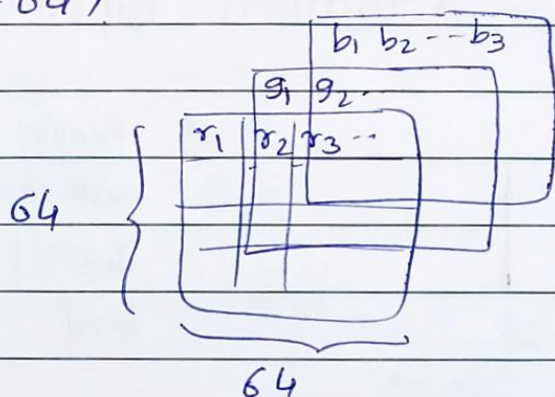 64)
b1 b2 -- b3
g1 g2 ..
r1 r2 r3 ..
64
64